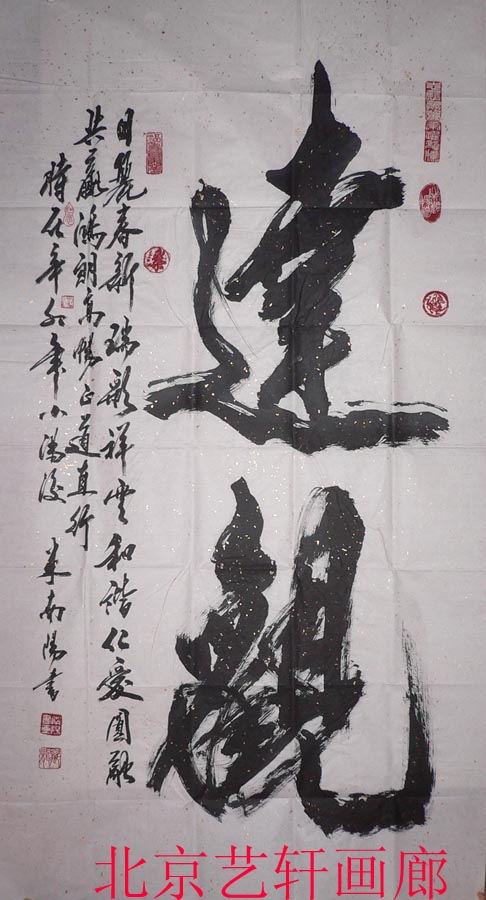 達觀
日麗春新瑞彩祥雲和谐仁愛圓融
共贏鴻朗高暢正道直行
時在辛卯年小陽後 米南陽書
北京艺轩画廊